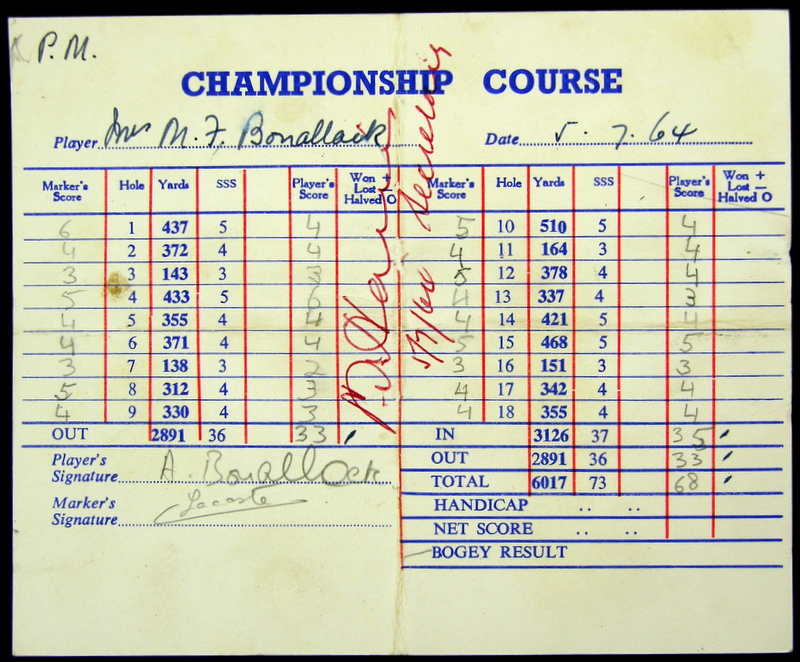 P.M.
CHAMPIONSHIP COURSE
Player Mrs M. F. Bonallack Date 5 . 7 . 64
Marker's Score Hole Yards SSS Player's Score Won + Lost — Halved O Marker's Score Hole Yards SSS Player's Score Won + Lost — Halved O
6 1 437 5 4 5 10 510 5 4
4 2 372 4 4 4 11 164 3 4
3 3 143 3 3 5 12 378 4 4
5 4 433 5 6 4 13 337 4 3
4 5 355 4 4 4 14 421 5 4
4 6 371 4 4 5 15 468 5 5
3 7 138 3 2 3 16 151 3 3
5 8 312 4 3 4 17 342 4 4
4 9 330 4 3 4 18 355 4 4
OUT 2891 36 33 IN 3126 37 35
OUT 2891 36 33
TOTAL 6017 73 68
HANDICAP .. ..
NET SCORE .. ..
BOGEY RESULT
Player's Signature A. Bonallack
Marker's Signature Lacoste
5/7/64 Secretary